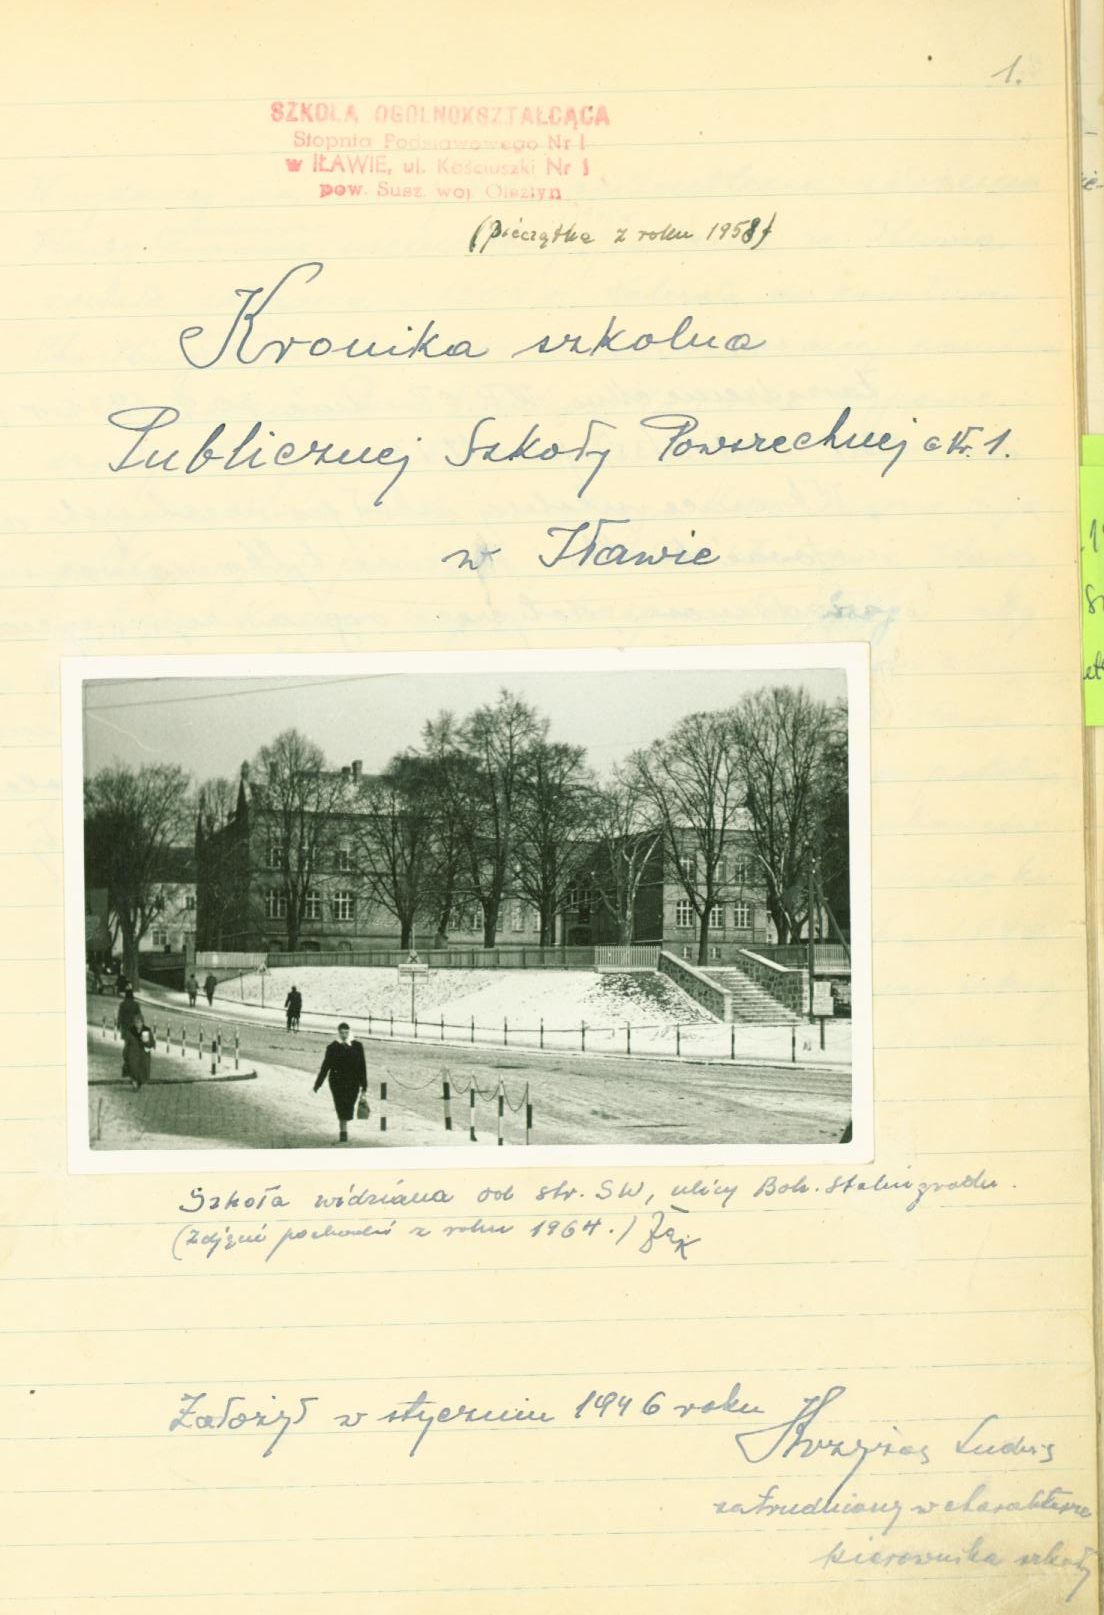 1.
SZKOŁA OGÓLNOKSZTAŁCĄCA
Stopnia Podstawowego Nr 1
w IŁAWIE, ul. Kościuszki Nr 1
pow. Susz. woj. Olsztyn
(pieczątka z roku 1958)
Kronika szkolna
Publicznej Szkoły Powszechnej Nr. 1.
w Iławie
Szkoła widziana od str. SW, ulicy Boh. Stalingradu.
(Zdjęcie pochodzi z roku 1964.)
Założył w styczniu 1946 roku
Ludwig
zatrudniony w charakterze
kierownika szkoły